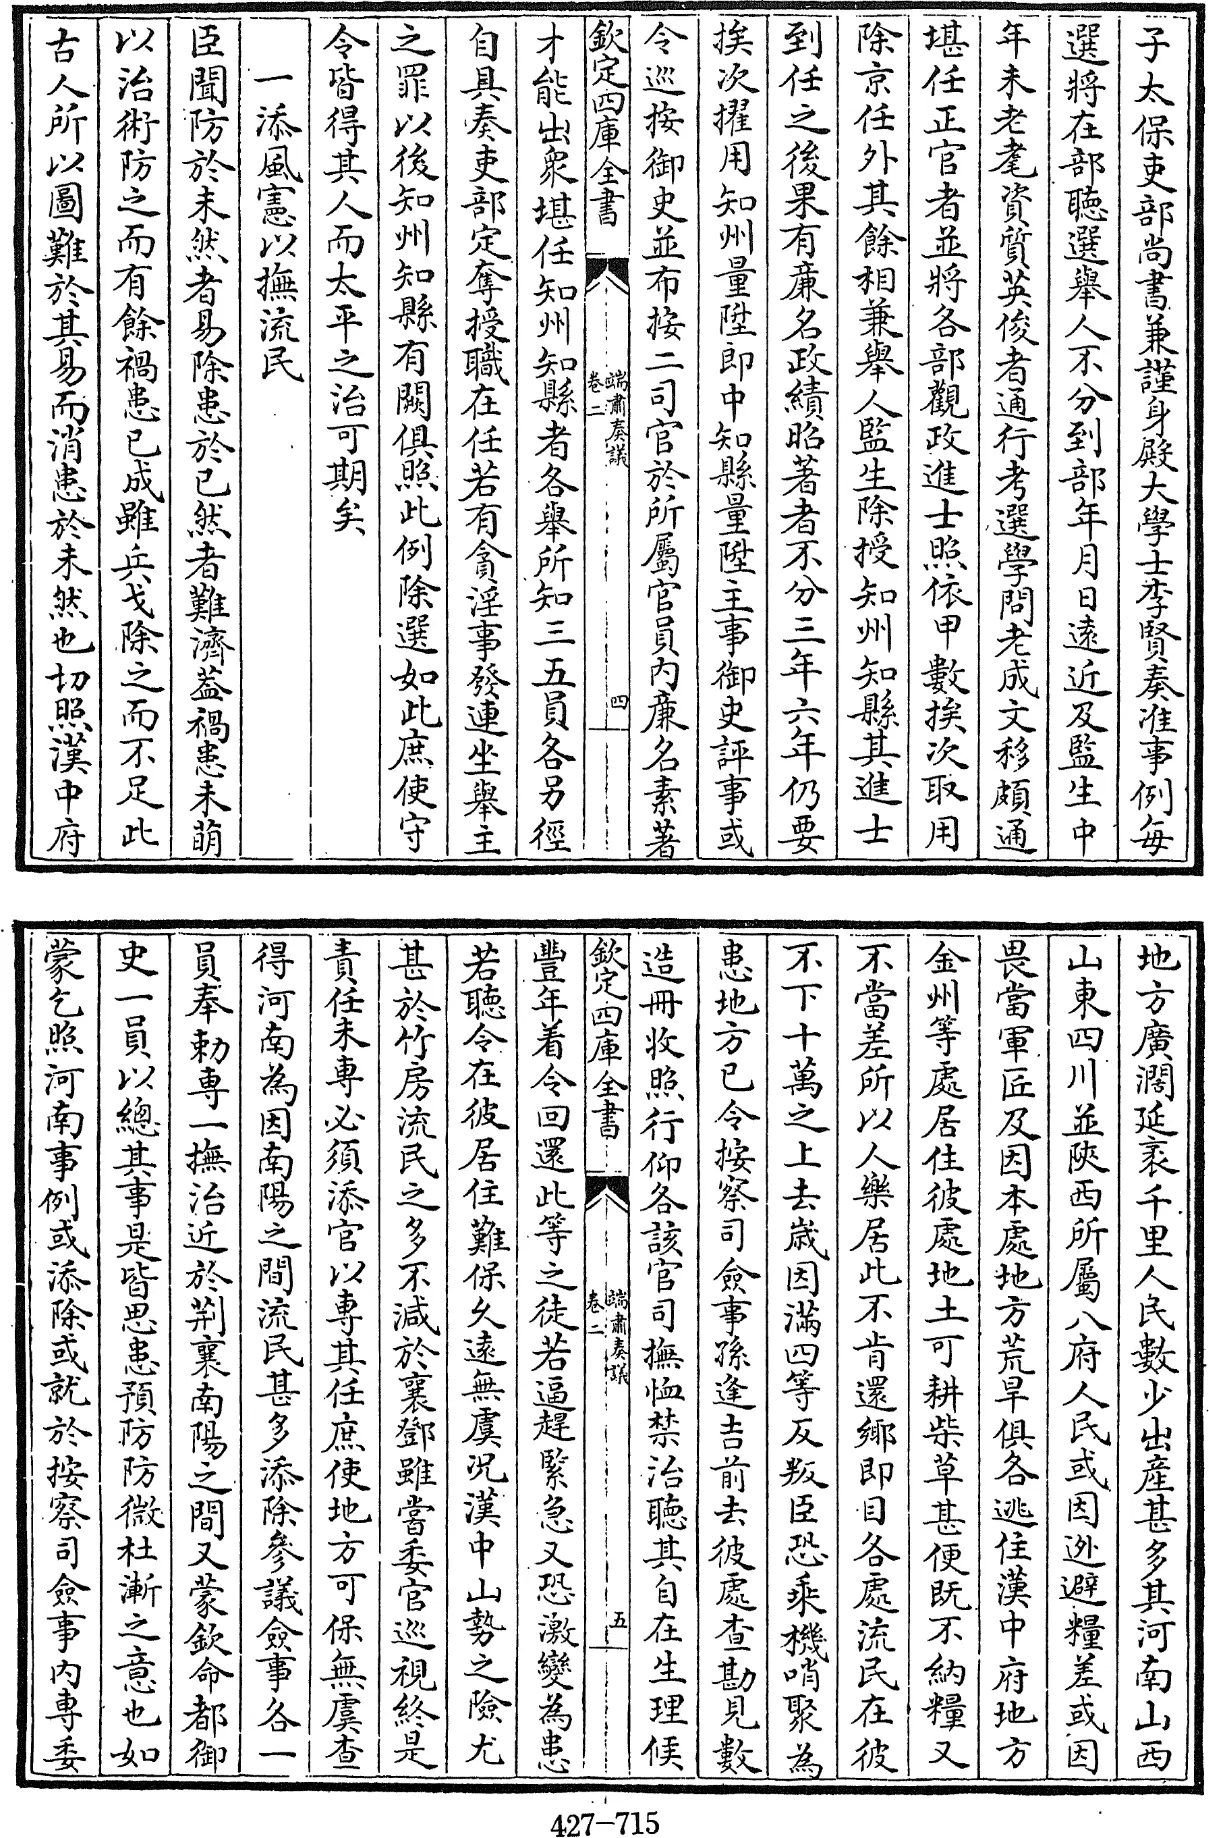 子太保吏部尚書兼謹身殿大學士李賢奏准事例每
選將在部聽選舉人不分到部年月日遠近及監生中
年未老耄資質英俊者通行考選學問老成文移頗通
堪任正官者並將各部觀政進士照依甲數挨次取用
除京任外其餘相兼舉人監生除授知州知縣其進士
到任之後果有廉名政績昭著者不分三年六年仍要
挨次擢用知州量陞郎中知縣量陞主事御史評事或
令巡按御史並布按二司官於所屬官員內廉名素著
欽定四庫全書
端肅奏議
卷二
四
才能出衆堪任知州知縣者各舉所知三五員各另徑
自具奏吏部定奪授職在任若有貪淫事發連坐舉主
之罪以後知州知縣有闕俱照此例除選如此庶使守
令皆得其人而太平之治可期矣
一添風憲以撫流民
臣聞防於未然者易除患於已然者難濟葢禍患未萌
以治術防之而有餘禍患已成雖兵戈除之而不足此
古人所以圖難於其易而消患於未然也切照漢中府
地方廣濶延袤千里人民數少出産甚多其河南山西
山東四川並陝西所屬八府人民或因迯避糧差或因
畏當軍匠及因本處地方荒旱俱各逃住漢中府地方
金州等處居住彼處地土可耕柴草甚便既不納糧又
不當差所以人樂居此不肯還鄉即目各處流民在彼
不下十萬之上去歲因滿四等反叛臣恐乘機哨聚為
患地方已令按察司僉事孫逢吉前去彼處查勘見數
造冊收照行仰各該官司撫恤禁治聽其自在生理候
欽定四庫全書
端肅奏議
卷二
五
豐年着令回還此等之徒若逼趕緊急又恐激變為患
若聽令在彼居住難保久遠無虞况漢中山勢之險尤
甚於竹房流民之多不減於襄鄧雖嘗委官巡視終是
責任未專必須添官以專其任庶使地方可保無虞查
得河南為因南陽之間流民甚多添除參議僉事各一
員奉勅專一撫治近於荆襄南陽之間又蒙欽命都御
史一員以總其事是皆思患預防防微杜漸之意也如
蒙乞照河南事例或添除或就於按察司僉事內專委
427-715